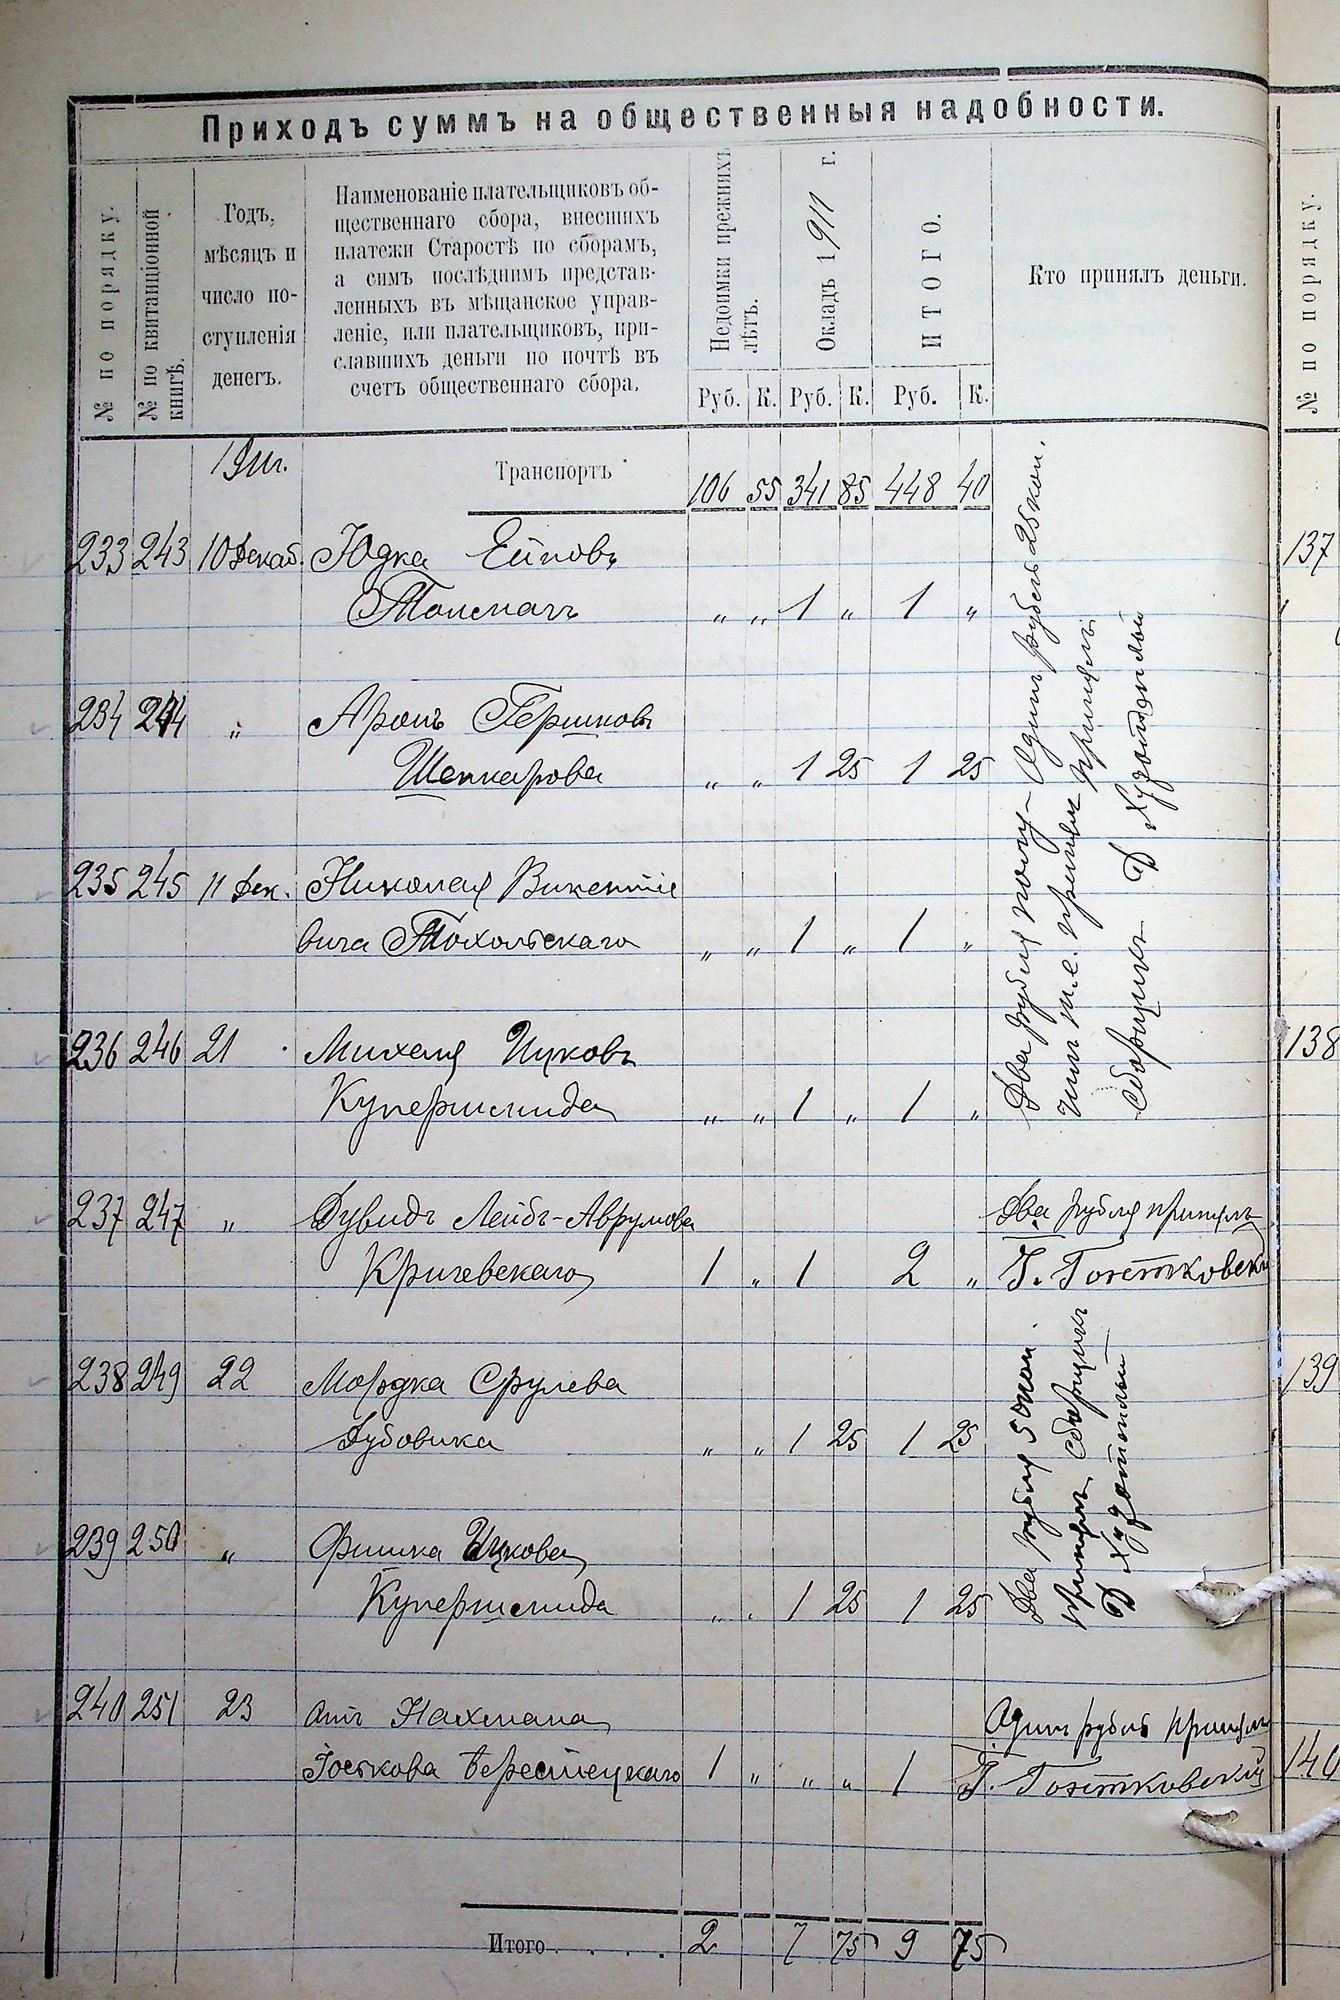 Приходъ суммъ на общественныя надобности.
№ по порядку.
№ по квитанціонной книгѣ.
Годъ,
мѣсяцъ и
число по-
ступленія
денегъ.
Наименованіе плательщиковъ об-
щественнаго сбора, внесшихъ
платежи Старостѣ по сборамъ,
а симъ послѣднимъ представ-
ленныхъ въ мѣщанское управ-
леніе, или плательщиковъ, при-
славшихъ деньги по почтѣ въ
счетъ общественнаго сбора.
Недоимки прежнихъ
лѣтъ.
Окладъ 1911 г.
ИТОГО.
Кто принялъ деньги.
Руб. К. Руб. К. Руб. К.
1911г. Транспортъ 106 55 341 85 448 40
233 243 10 Декаб. Юдка
„ „ 1 „ 1 „
234 244 „ Аронъ Гершковъ
„ „ 1 25 1 25
235 245 11 Дек. Николая Викентіе
вича „ „ 1 „ 1 „
236 246 21 Михеля Ицковъ
Купершмида „ „ 1 „ 1 „
Два рубля полу- Одинъ рубль 25 коп.
чилъ т.е. принялъ принялъ
сборщикъ
237 247 „ Дувидъ Лейбъ-Аврумова Два рубля принялъ
Кричевскаго 1 „ 1 2 „
238 249 22 Мордка Срулева
Дубовика „ „ 1 25 1 25
239 250 „ Фишка Ицкова
Купершмида „ „ 1 25 1 25
Два рубля 50 коп.
принялъ сборщикъ
240 251 23 Отъ Нахмана Одинъ рубль принялъ
Іоськова Берестецкаго 1 „ „ „ 1
Итого . . . . 2 7 75 9 75
№ по порядку.
137
138
139
140